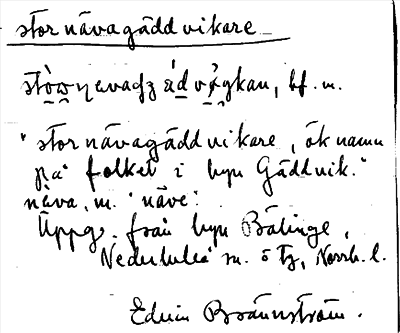 stornävagäddvikare
bf. m.
"stornävagäddvikare, öknamn
på folket i byn Gäddvik."
näva, m. 'näve'.
Uppg. från byn Bälinge,
Nederluleå sn. o tg, Norrb. l.
Edvin Brännström.